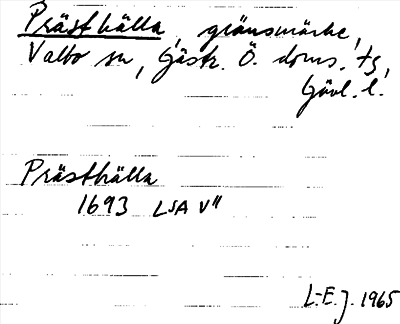 Prästhälla, gränsmärke,
Valbo sn, Gästr. Ö. doms. tg,
Gävl. l.
Prästhälla
1693 LSA V"
L-E. J. 1965